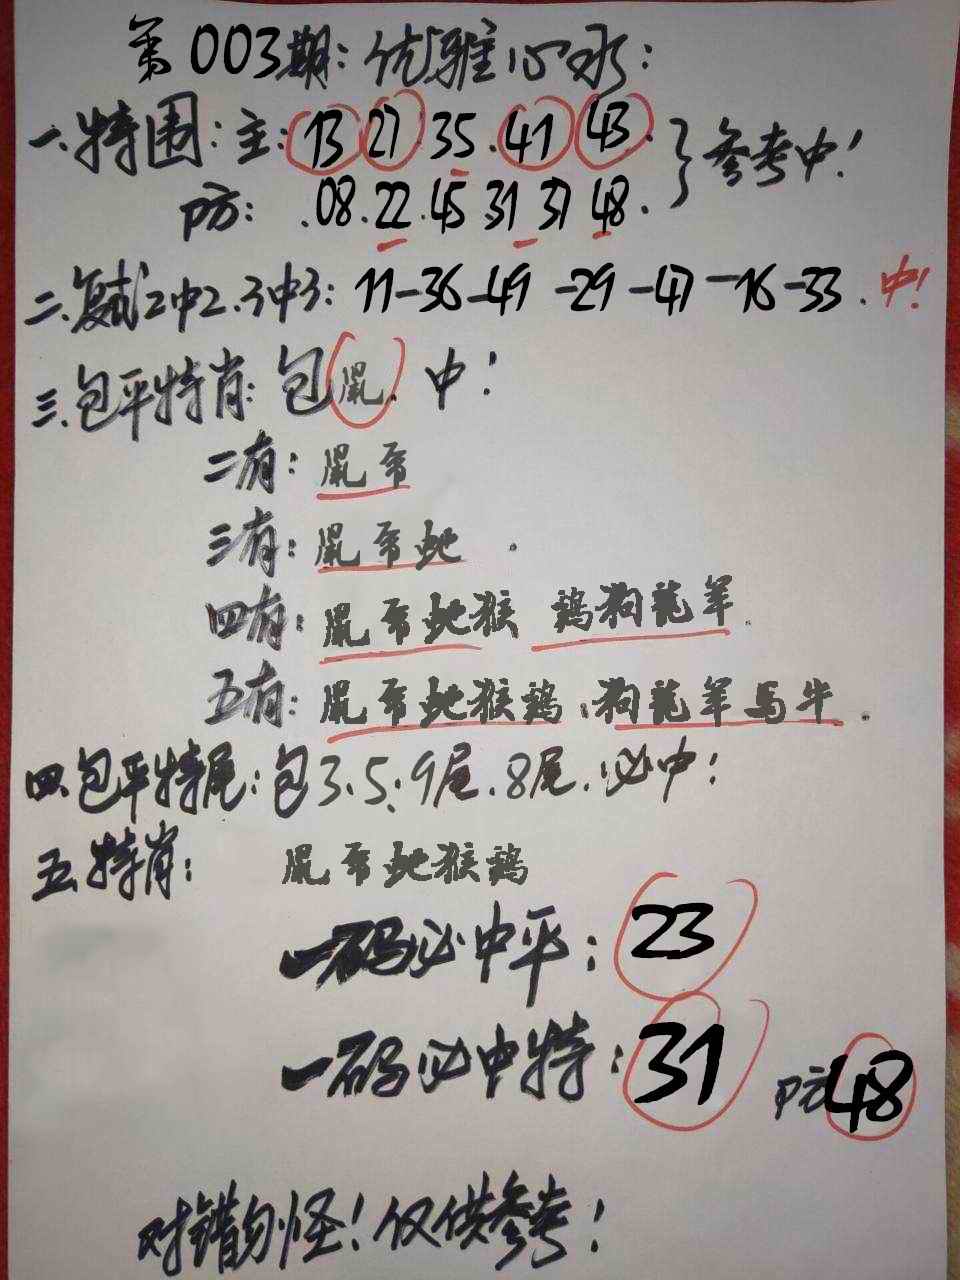 第003期：优雅心水：
一.特围：主：13 27 35.41 43. 参考中！
防：.08.22.45 31 37 48.
二.复试2中2.3中3：11-36-49-29-47-16-33.中！
三.包平特肖：包鼠.中！
二有：鼠
三有：鼠 蛇.
四有：鼠 蛇猴 鸡狗龍羊.
五有：鼠 蛇猴鸡.狗龍羊马牛.
四.包平特尾：包3、5.9尾.8尾.必中！
五.特肖： 鼠 蛇猴鸡
一码必中平：23
一码必中特：31 防48
对错勿怪！仅供参考！